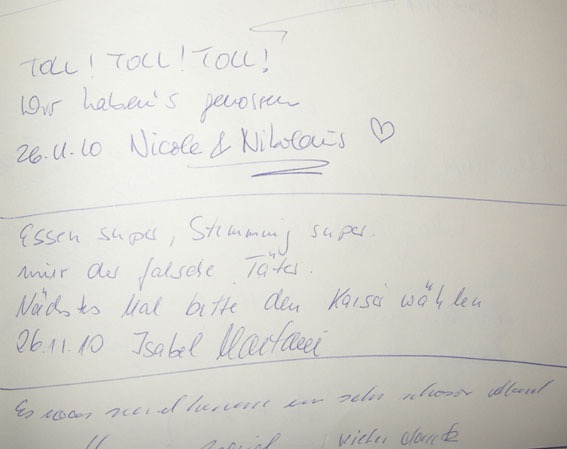 TOLL! TOLL! TOLL!
Wir haben's genossen
26.11.10 Nicole & Nikolaus ♡
Essen super, Stimmung super.
nur der falsche Täter.
Nächstes Mal bitte den Kaiser wählen
26.11.10 Isabel
Es war ein sehr schöner Abend
vielen dank